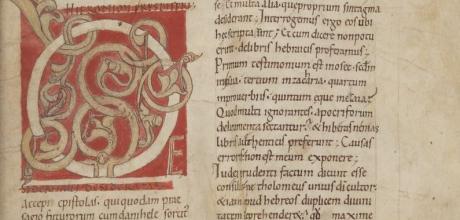 HIERONIMI PRESBITERI
D
E
SIDERII MEI DESIDERATAS
accepi epistolas. qui quodam prae
sagio futurorum cum danihele sortit
se; & multa alia que proprium sintagma
desiderant; Interrogemus ergo eos ubi
hec scripta sint; Et cum dicere non potu
erint. de libris hebraicis proferamus;
Primum testimonium est in osee. secdm
in isaia. tertium in zacharia. quartum
in proverbiis. quintum eque in esaia;
Quod multi ignorantes. apocriforum
deliramenta sectantur. & hiberas nenias
libris authenticis preferunt; Causas
erroris non est meum exponere;
Iudei prudenti factum dicunt esse
consilio. ne tholomeus unius dei cultor.